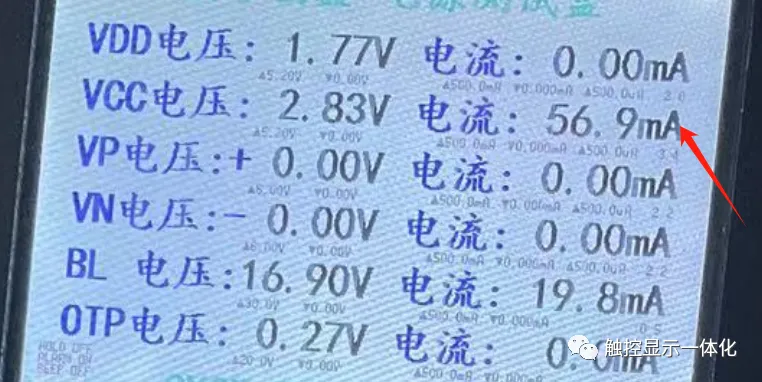 电源测试盒
VDD电压: 1.77V 电流: 0.00mA
▲5.20V ▼0.00V ▲500.0mA ▼0.000mA ▲500.0uA
VCC电压: 2.83V 电流: 56.9mA
▲5.20V ▼0.00V ▲500.0mA ▼0.000mA ▲500.0uA
VP电压:+ 0.00V 电流: 0.00mA
▼0.00V ▲500.0mA ▼0.000mA ▲500.0uA 2.2
VN电压:- 0.00V 电流: 0.00mA
▼0.00V ▲500.0mA ▼0.000mA ▲500.0uA 2.2
BL 电压:16.90V 电流: 19.8mA
▲30.0V ▼0.00V ▲500.0mA ▼0.000mA
OTP电压: 0.27V 电流:
▲20.0V ▼0.00V
HOLD OFF
ALARM ON
BEEP OFF
触控显示一体化